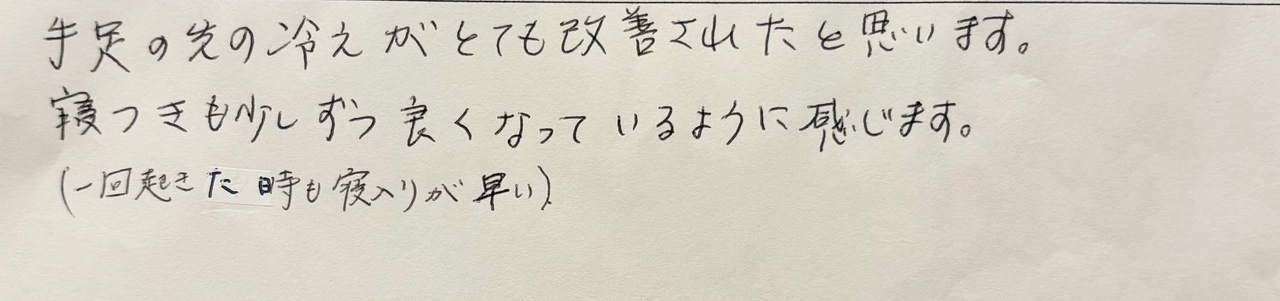 手足の先の冷えがとても改善されたと思います。
寝つきも少しずつ良くなっているように感じます。
(一回起きた時も寝入りが早い)